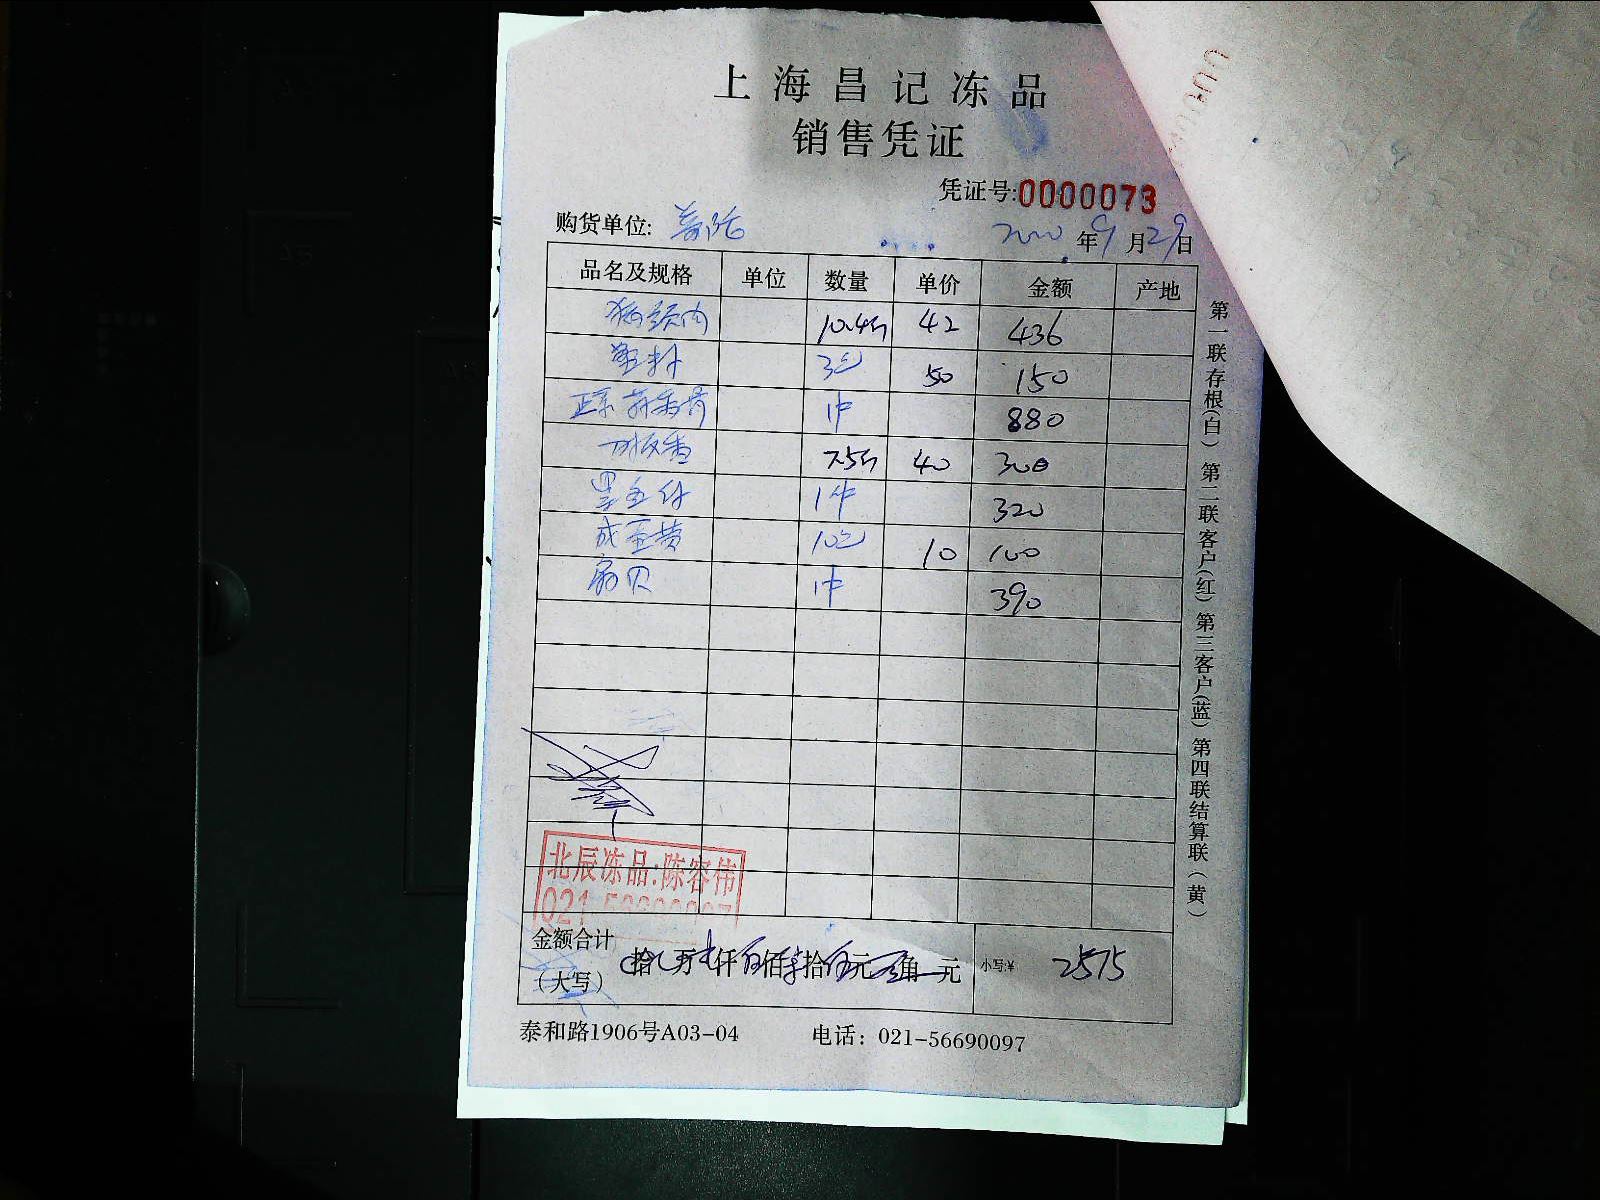 上海昌记冻品
销售凭证
凭证号:0000073
购货单位: 2020年9月29日
品名及规格 单位 数量 单价 金额 产地
猪颈肉 10.4斤 42 436
塑料 3包 50 150
1件 880
7.5斤 40 300
墨鱼仔 1件 320
咸蛋黄 10包 10 100
扇贝 1件 390
北辰冻品:陈容伟
021-56690097
金额合计
(大写) 拾 万 仟 佰 拾 元 角 元 小写:¥ 2575
泰和路1906号A03-04 电话: 021-56690097
第一联存根(白) 第二联客户(红) 第三客户(蓝) 第四联结算联(黄)